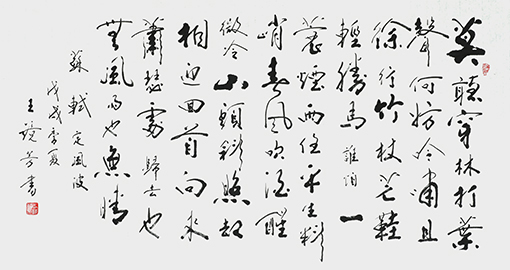 莫聽穿林打葉
聲何妨吟嘯且
徐行竹杖芒鞋
輕勝馬誰怕一
蓑煙雨任平生料
峭春風吹酒醒
微冷山頭斜照却
相迎回首向來
蕭瑟處歸去也
無風雨也無晴
蘇軾定風波
戊戌季夏
王 書